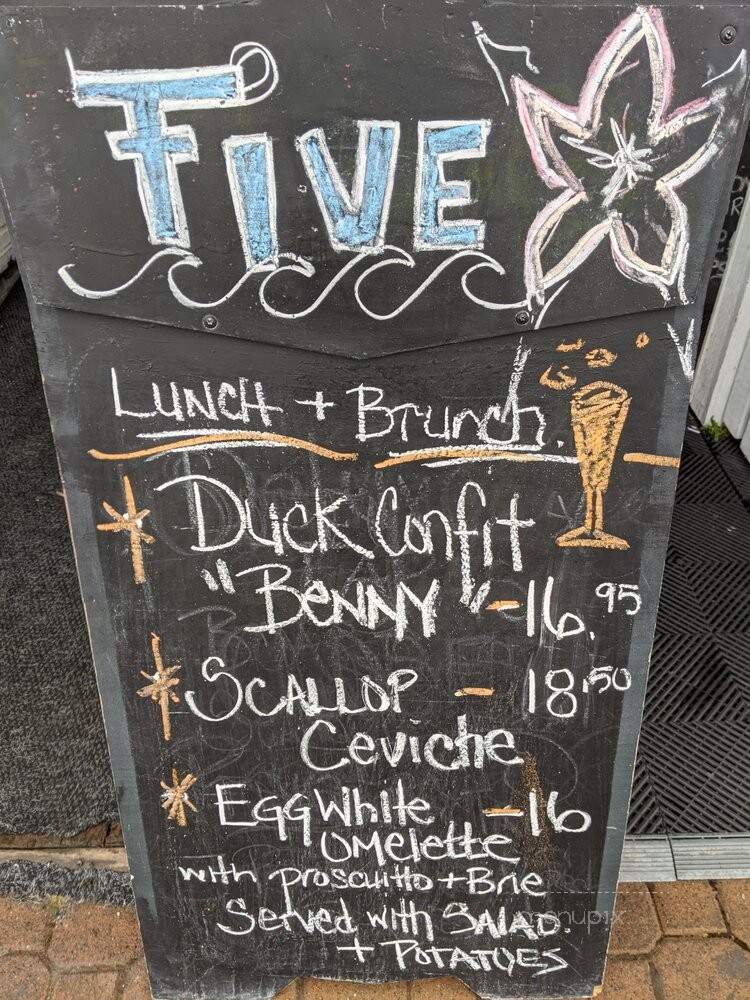 FIVE
LUNCH + Brunch.
DUCK Confit
"BENNY" - 16.95
SCALLOP - 18.50
Ceviche
EGG White - 16
OMelette
with proscuitto + Brie
Served with SALAD.
+ POTATOES
menupix